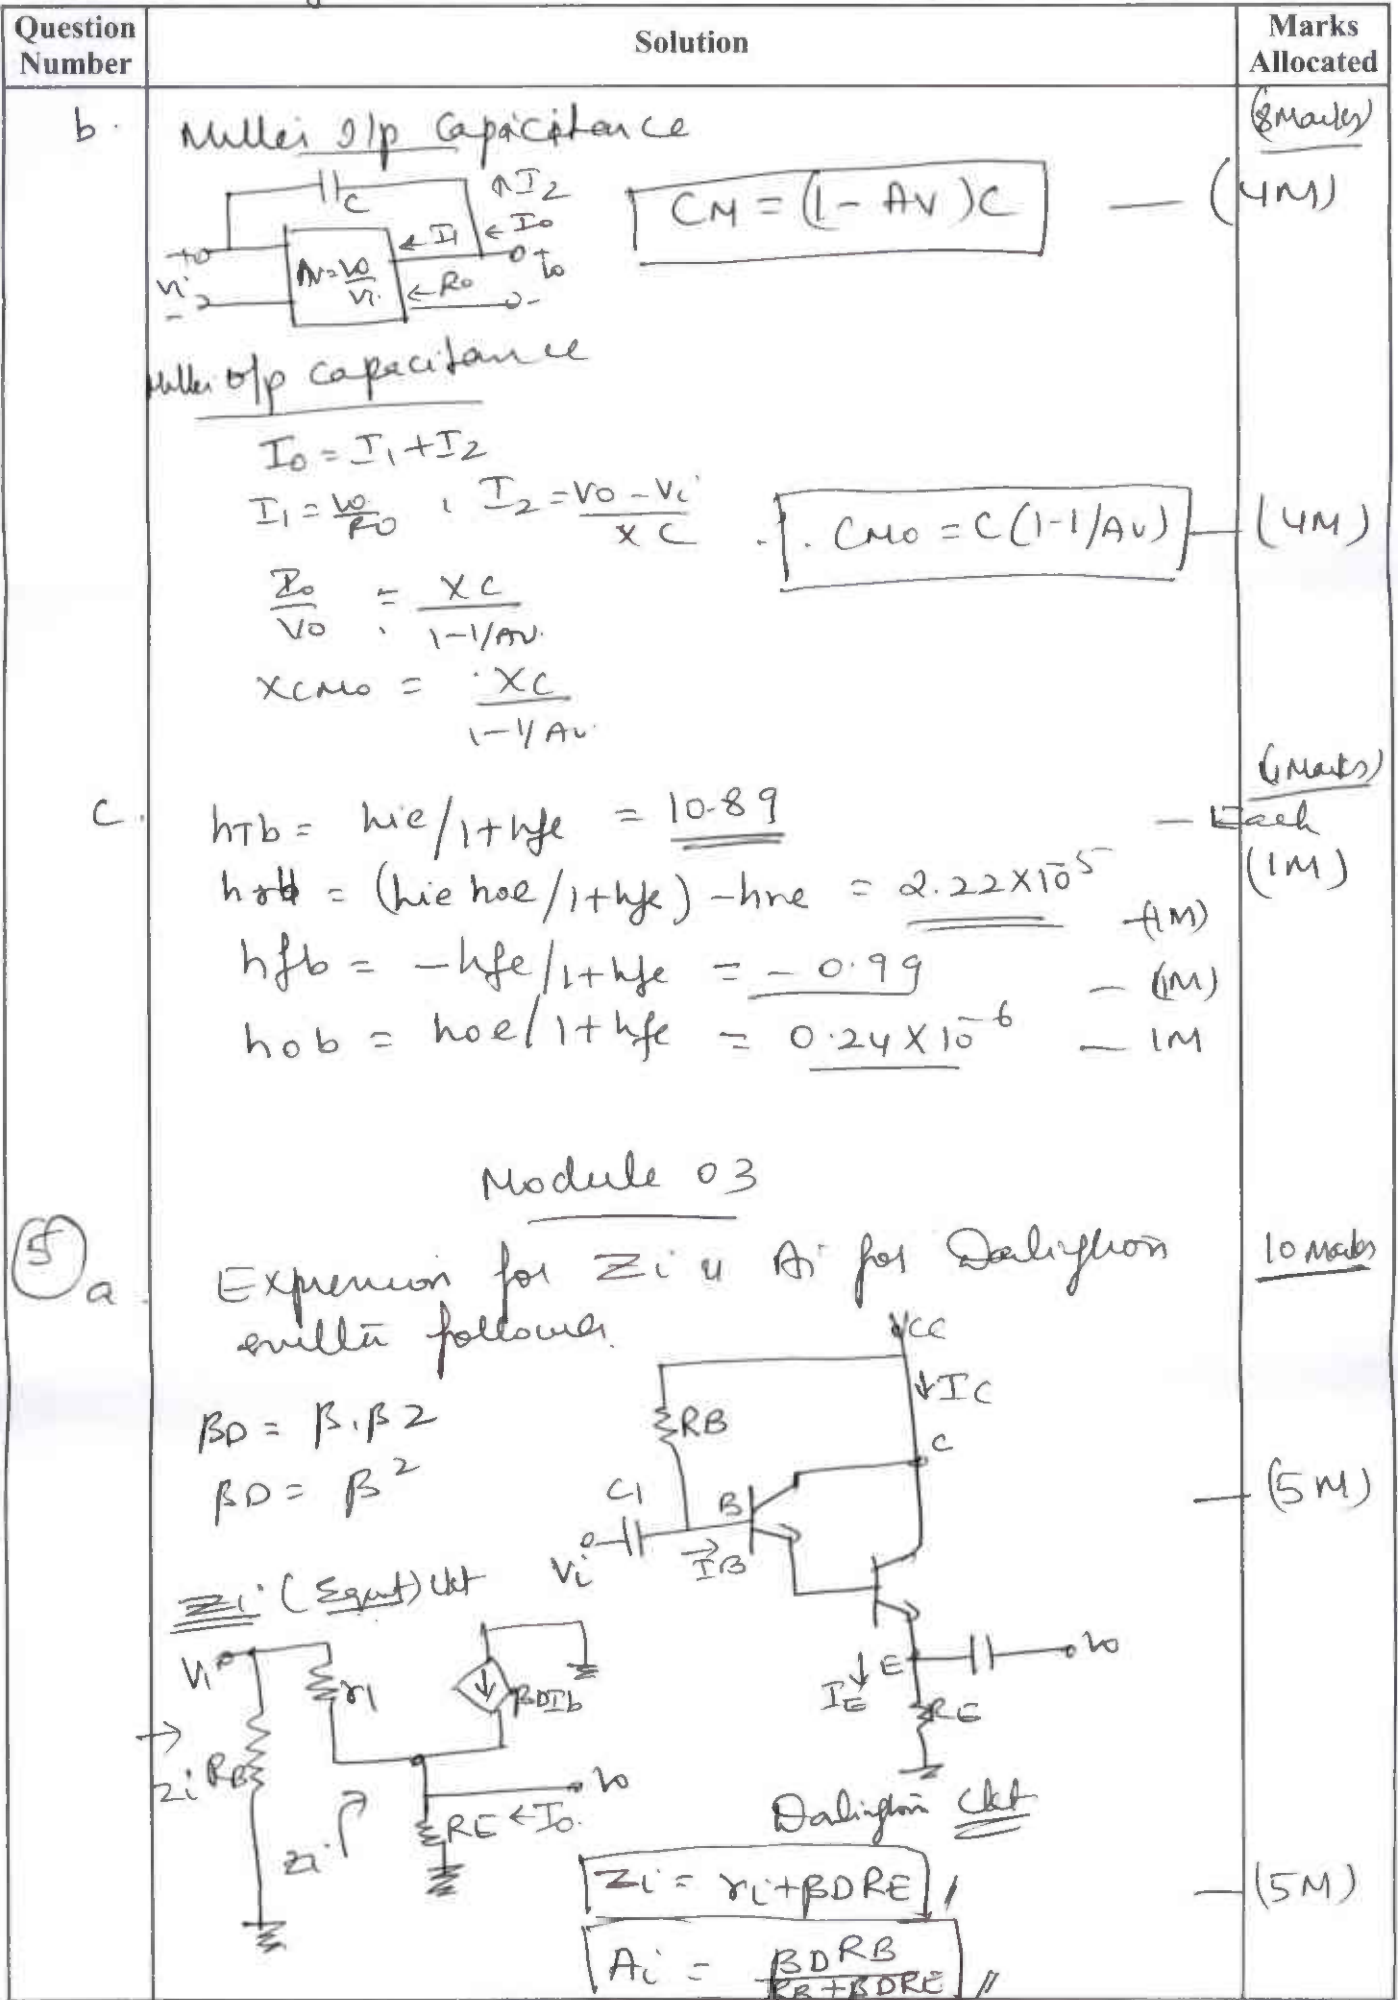 Question Number
Solution
Marks Allocated
b.
Miller I/p Capacitance
(8 Marks)
C
↑I2
← I1 ← I0
+ Vi -
AV = V0/Vi
← R0
+ V0 -
CM = (1 - AV)C — (4M)
Miller O/p Capacitance
I0 = I1 + I2
I1 = V0/R0 , I2 = V0 - Vi / XC
∴ CM0 = C(1-1/AV) — (4M)
I0/V0 = XC / 1-1/AV.
XCM0 = XC / 1-1/AV.
c.
hib = hie/1+hfe = 10.89 — Each (1M)
hrb = (hie hoe/1+hfe) - hre = 2.22×10^-5 - (1M)
hfb = -hfe/1+hfe = -0.99 — (1M)
hob = hoe/1+hfe = 0.24×10^-6 — 1M
Module 03
5 a.
10 Marks
Expression for Zi & Ai for Darlington
emitter follower.
βD = β1β2
βD = β^2
VCC
↓IC
RB
C
C1
B
Vi
→ IB
— (5M)
E
V0
IE ↓
RE
Darlington Ckt
Zi (Equt) Ckt
Vi
ri
βDIb
→ Zi
RB
V0
RE ← I0.
Zi
Zi = ri + βDRE //
— (5M)
Ai = βDRB / RB + βDRE //